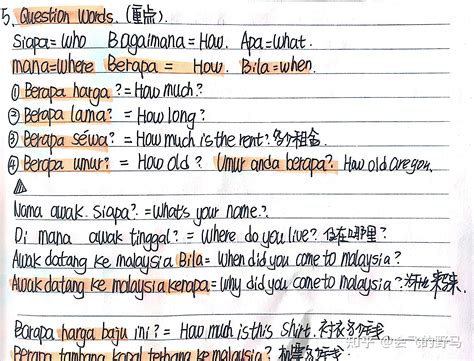 5. Question Words. (重点).
Siapa = who Bagaimana = How. Apa = what.
mana = where Berapa = How. Bila = when.
① Berapa harga? = How much?
② Berapa lama? = How long?
③ Berapa séwa? = How much is the rent? 多少租金.
④ Berapa umur? = How old? Umur anda berapa?
Nama awak. Siapa? = what's your name?
Di mana awak tinggal? = where do you live? 住在哪里?
Awak datang ke malaysia Bila = when did you come to malaysia?
Awak datang ke malaysia kenapa = why did you come to malaysia?
Barapa harga baju ini? = How much is this shirt.
Berapa tambang kapal terbang ke malaysia?
知乎 @会飞的野马